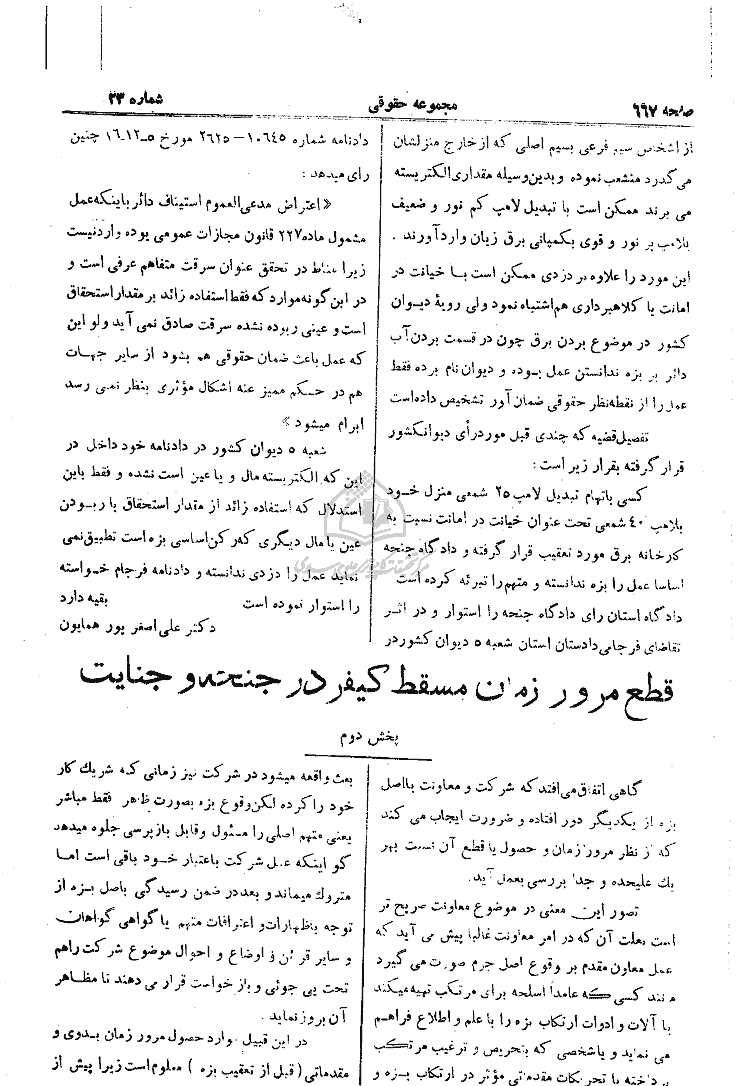 صفحه ۶۶۷
مجموعه حقوقی
شماره ۳۳
از اشخاص سیم فرعی بسیم اصلی که از خارج منزلشان
می‌گذرد منشعب نموده و بدین‌وسیله مقداری الکتریسته
می برند ممکن است با تبدیل لامپ کم نور و ضعیف
بلامپ پر نور و قوی بکمپانی برق زیان وارد آورند .
این مورد را علاوه بر دزدی ممکن است با خیانت در
امانت یا کلاهبرداری هم اشتباه نمود ولی رویهٔ دیوان
کشور در موضوع بردن برق چون در قسمت بردن آب
دائر بر بزه ندانستن عمل بوده و دیوان نام برده فقط
عمل را از نقطه‌نظر حقوقی ضمان آور تشخیص داده‌است
تفصیل قضیه که چندی قبل مورد رأی دیوانکشور
قرار گرفته بقرار زیر است :
کسی باتهام تبدیل لامپ ۲۵ شمعی منزل خود
بلامپ ۴۰ شمعی تحت عنوان خیانت در امانت نسبت به
کارخانه برق مورد تعقیب قرار گرفته و دادگاه جنحه
اساسا عمل را بزه ندانسته و متهم را تبرئه کرده است
دادگاه استان رای دادگاه جنحه را استوار و در اثر
تقاضای فرجامی دادستان استان شعبه ۵ دیوان کشور در
دادنامه شماره ۱۰۶۴۵-۲۶۲۵ مورخ ۵-۱۲-۱۶ چنین
رای میدهد :
« اعتراض مدعی‌العموم استیناف دائر باینکه عمل
مشمول ماده ۲۲۷ قانون مجازات عمومی بوده وارد نیست
زیرا مناط در تحقق عنوان سرقت متفاهم عرفی است و
در این گونه موارد که فقط استفاده زائد بر مقدار استحقاق
است و عینی ربوده نشده سرقت صادق نمی آید ولو این
که عمل باعث ضمان حقوقی هم بشود از سایر جهات
هم در حکم ممیز عنه اشکال مؤثری بنظر نمی رسد
ابرام میشود »
شعبه ۵ دیوان کشور در دادنامه خود داخل در
این که الکتریسته مال و یا عین است نشده و فقط باین
استدلال که استفاده زائد از مقدار استحقاق با ربودن
عین یا مال دیگری که رکن اساسی بزه است تطبیق نمی
نماید عمل را دزدی ندانسته و دادنامه فرجام خواسته
را استوار نموده است
بقیه دارد
دکتر علی‌اصغر پور همایون
قطع مرور زمان مسقط کیفر در جنحه و جنایت
بخش دوم
گاهی اتفاق می‌افتد که شرکت و معاونت بااصل
بزه از یکدیگر دور افتاده و ضرورت ایجاب می کند
که از نظر مرور زمان و حصول یا قطع آن نسبت بهر
یك علیحده و جدا بررسی بعمل آید.
تصور این معنی در موضوع معاونت صریح تر
است بعلت آن که در امر معاونت غالبا پیش می آید که
عمل معاون مقدم بر وقوع اصل جرم صورت می گیرد
مانند کسی که عامداً اسلحه برای مرتکب تهیه میکند
یا آلات و ادوات ارتکاب بزه را با علم و اطلاع فراهم
می نماید و یاشخصی که بتحریص و ترغیب مرتکب
پرداخته با تحریکات مقدماتی مؤثر در ارتکاب بزه و
بعث واقعه میشود در شرکت نیز زمانی که شریك کار
خود را کرده لکن وقوع بزه بصورت ظاهر فقط مباشر
یعنی متهم اصلی را مسئول و قابل بازپرسی جلوه میدهد
گو اینکه عمل شرکت باعتبار خود باقی است اما
متروك میماند و بعد در ضمن رسیدگی باصل بزه از
توجه باظهارات و اعترافات متهم یا گواهی گواهان
و سایر قرائن و اوضاع و احوال موضوع شرکت راهم
تحت پی جوئی و بازخواست قرار می دهند تا مظاهر
آن بروز نماید .
در این قبیل موارد حصول مرور زمان بدوی و
مقدماتی ( قبل از تعقیب بزه ) معلوم است زیرا پیش از